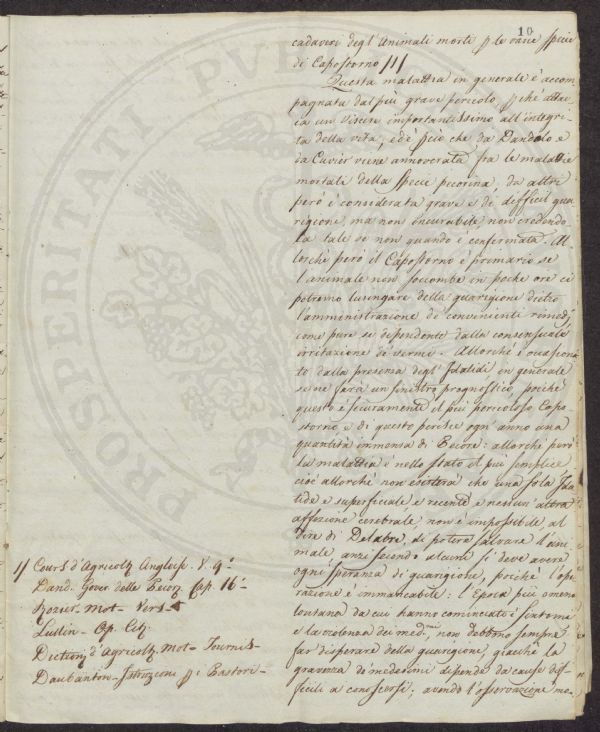 10
cadaveri degl'Animali morti p le varie Specie
di Capostorno 11
Questa malattia in generale è accom
pagnata dal più grave pericolo, p chè attac
ca un viscere importantissimo all'integri
tà della vita, ed è p ciò che da Dandolo e
da Cuvier viene annoverata fra le malattie
mortali della Specie pecorina, da altri
però è considerata grave e di difficil gua
rigione, ma non incurabile, non credendo
la tale se non quando è confermata. Al
lorchè però il Capostorno è primario se
l'animale non soccombe in poche ore ci
potremo lusingare della guarigione dietro
l'amministrazione di convenienti rimedj
come pure se dipendente dalla consensuale
irritazione de vermi. Allorchè è occasiona
to dalla presenza degl'Idatidi in generale
se ne farà un sinistro prognostico, poichè
questo è sicuramente il più pericoloso Capo
storno, e di questo perisce ogn'anno una
quantità immensa di Pecore: allorchè però
la malattia è nello stato il più semplice
cioè allorchè non esisterà che una sola Ida
tide e superficiale e recente e nessun'altra
affezione cerebrale, non è impossibile, al
dire di Delabre, di potere salvare l'ani
male, anzi secondo alcuni si deve avere
ogni speranza di guarigione, poichè l'ope
razione è immancabile: l'Epoca più o meno
lontana da cui hanno cominciato i sintomi
e la violenza dei med.mi, non debbono sempre
far disperare della guarigione, giacchè la
gravezza de' medesimi dipende da cause dif
ficili a conoscersi; avendo l'osservazione mo-
11 Cours d'Agricolt. Angloise. V. 9°
Dand. Gover. delle Pecore Cap. 16°
Rozier. Mot- Vers
Lustin- Op. Cit.
Diction. d'Agricolt. Mot- Tournis-
Daubanton- Istruzioni p i Pastori-
PROSPERITÀ
PUB